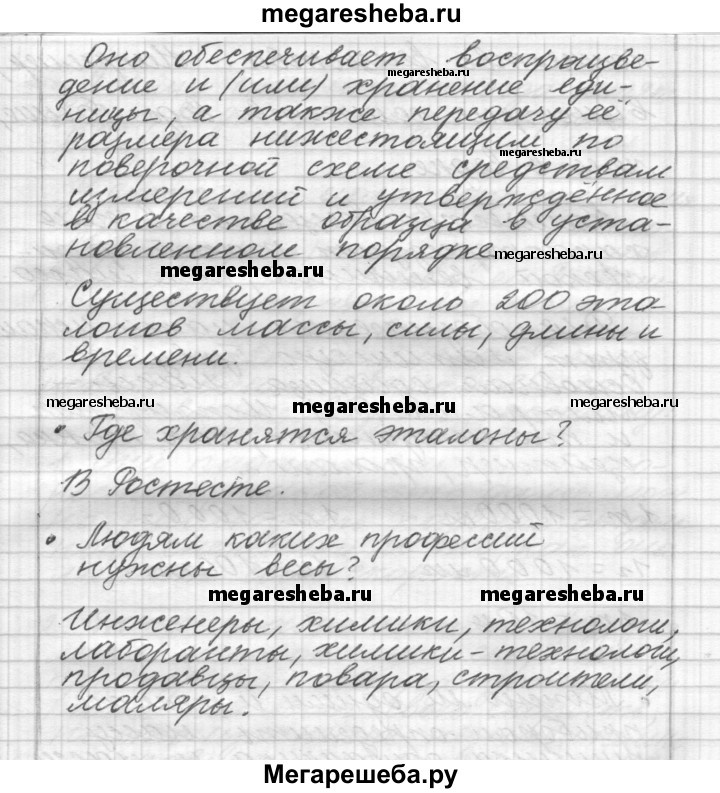 megaresheba.ru
Оно обеспечивает воспроизве-
megaresheba.ru
дение и (или) хранение еди-
ницы, а также передачу её
megaresheba.ru
размера нижестоящим по
megaresheba.ru
поверочной схеме средствам
измерений и утверждённое
в качестве образца в уста-
новленном порядке
megaresheba.ru
megaresheba.ru
Существует около 200 эта-
лонов массы, силы, длины и
времени.
megaresheba.ru megaresheba.ru megaresheba.ru
• Где хранятся эталоны?
В Ростесте.
• Людям каких профессий
нужны весы?
megaresheba.ru megaresheba.ru
Инженеры, химики, технологи,
лаборанты, химики-технологи,
продавцы, повара, строители,
маляры.
Мегарешеба.ру